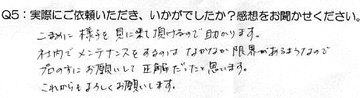 Q5：実際にご依頼いただき、いかがでしたか？感想をお聞かせください。
こまめに様子を見に来て頂けるので助かります。
社内でメンテナンスをするのはなかなか限界があるようなので
プロの方にお願いして正解だったと思います。
これからもよろしくお願いします。